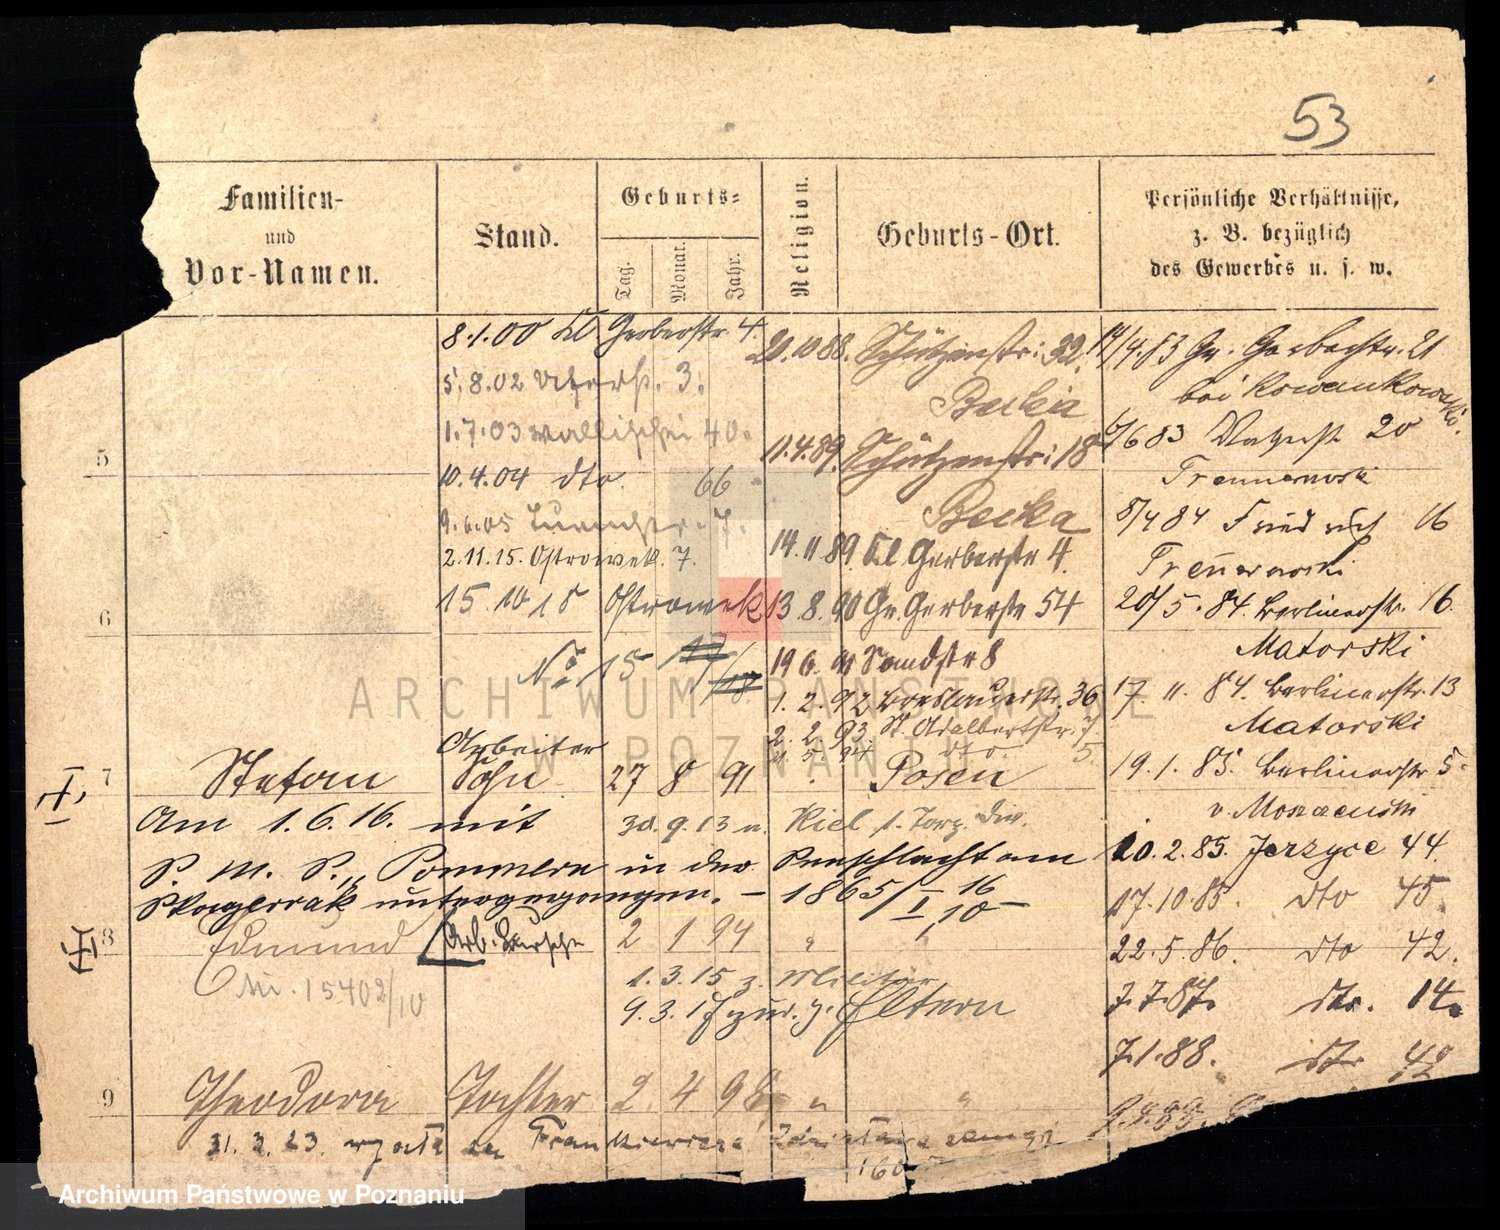 53
Familien-
und
Vor-Namen.
Stand.
Geburts-
Tag.
Monat.
Jahr.
Religion.
Geburts-Ort.
Persönliche Verhältnisse,
z. B. bezüglich
des Gewerbes u. s. w.
8.1.00 Kl Gerberstr 4.
5.8.02 Uferstr. 3.
1.7.03 Wallischei 40.
10.4.04 dto. 66
9.6.05
2.11.15. Ostrowek. 7.
15.10 18 Ostrowek
No 15
20.10 88. Schützenstr: 32.
Becka
11.4.89. Schützenstr: 18
Becka
14.11.89. Kl Gerberstr 4.
13.8.90 Gr. Gerberstr 54
19 6. 91 Sandstr 8
1. 2. 92 Breslauerstr. 36
2. 2. 93. St. Adalbertstr. 7
dto 5.
14/4.83 Gr. Gerberstr. 21
bei Kowankowski.
6/6 83 20
8/4 84 Friedrich 16
20/5. 84. Berlinerstr. 16.
Matorski
17. 11. 84. Berlinerstr. 13
Matorski
19.1. 85. Berlinerstr. 5.
10.2.85. Jerzyce 44.
17.10.85. dto 45.
22.5.86. dto 42.
7.7.87. dto. 14.
7.1.88. dto 42
5
6
7
Stefan
Arbeiter
Sohn
27 8 91
Posen
Am 1.6.16. mit
30.9.13 n. Kiel 1. Torp. Div.
S. M. S. „Pommern in der Seeschlacht am
Skagerrak untergegangen. — 1865/I 16
8
Edmund
Arb. Bursche
2 1 94 " "
Nr. 15402/10
1.3.15 z. Militär
9.3.17 zur. z. Eltern
9
Theodora Tochter 2 4 98 " "
31.3.23.
160
ARCHIWUM PAŃSTWOWE
W POZNANIU
Archiwum Państwowe w Poznaniu